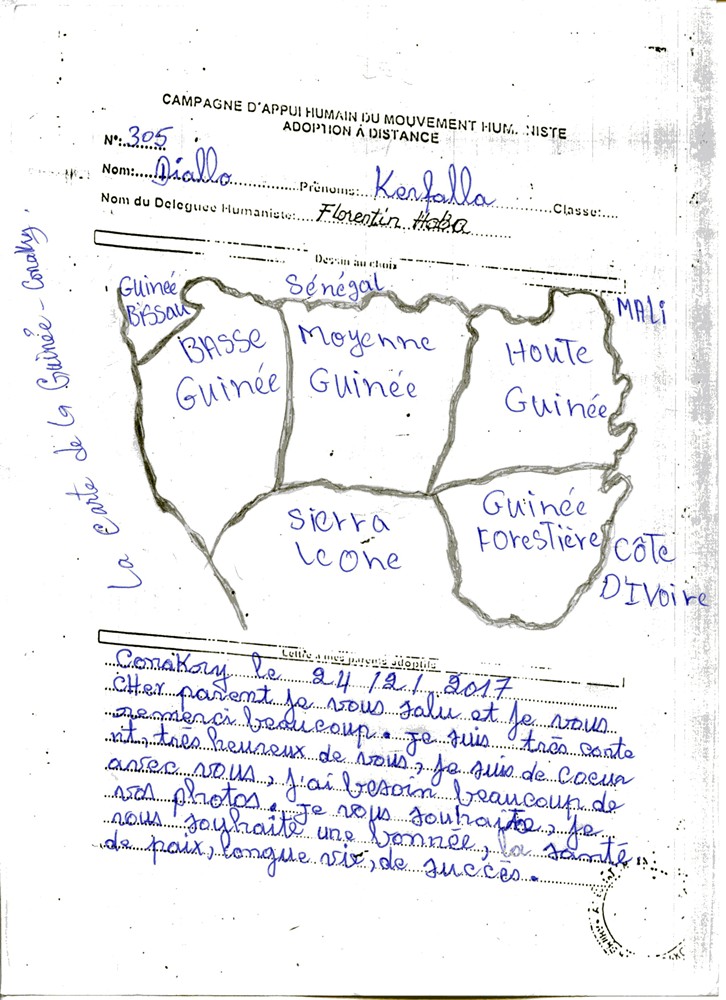 CAMPAGNE D'APPUI HUMAIN DU MOUVEMENT HUM...NISTE
ADOPTION À DISTANCE
N°:.305
Nom:....Diallo..............Prénoms:....Kerfalla..............Classe:....
Nom du Deleguee Humaniste:....Florentin Haba
Dessin au choix
La carte de la Guinée - Conakry.
Guinée
Bissau
Sénégal
MALi
BASSE
Guinée
Moyenne
Guinée
HOUTe
Guinée
Sierra
LeOne
Guinée
ForesTière
CôTe
D'IVoire
Lettre à mes parents adoptifs
Conakry le 24/12/2017
CHer parent je vous salu et je vous
remerci beaucoup. je suis très conte
nt, très heureux de vous, je suis de coeur
avec vous, j'ai besoin beaucoup de
vos photos. je vous souhaite, je
vous souhaite une bonnée, la santé
de paix, longue vie, de succès.